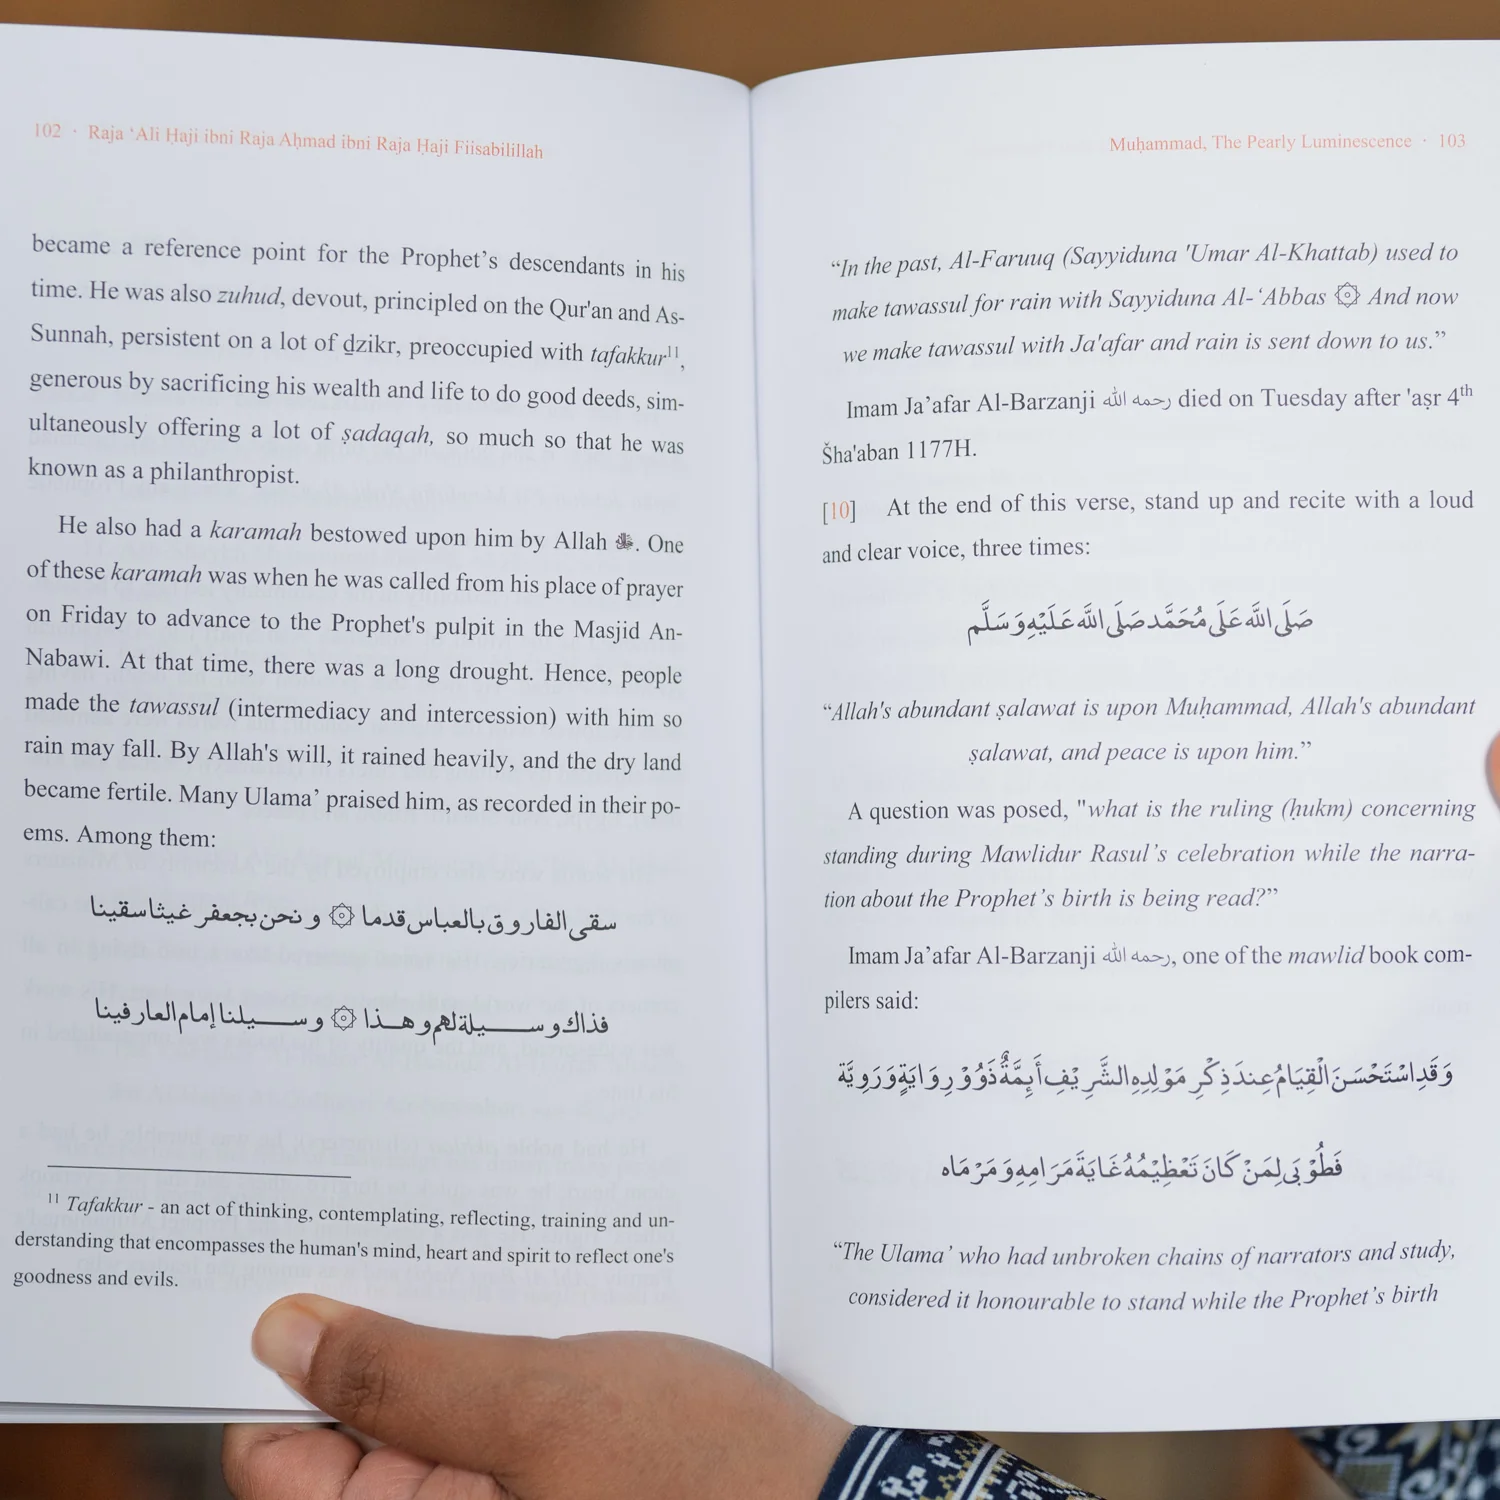 102 · Raja ‘Ali Ḥaji ibni Raja Aḥmad ibni Raja Ḥaji Fiisabilillah
became a reference point for the Prophet’s descendants in his
time. He was also zuhud, devout, principled on the Qur'an and As-
Sunnah, persistent on a lot of ḏzikr, preoccupied with tafakkur¹¹,
generous by sacrificing his wealth and life to do good deeds, sim-
ultaneously offering a lot of ṣadaqah, so much so that he was
known as a philanthropist.
He also had a karamah bestowed upon him by Allah ﷻ. One
of these karamah was when he was called from his place of prayer
on Friday to advance to the Prophet's pulpit in the Masjid An-
Nabawi. At that time, there was a long drought. Hence, people
made the tawassul (intermediacy and intercession) with him so
rain may fall. By Allah's will, it rained heavily, and the dry land
became fertile. Many Ulama’ praised him, as recorded in their po-
ems. Among them:
سقى الفاروق بالعباس قدما ۞ ونحن بجعفر غيثا سقينا
فذاك وسيلة لهم وهذا ۞ وسيلنا إمام العارفينا
¹¹ Tafakkur - an act of thinking, contemplating, reflecting, training and un-
derstanding that encompasses the human's mind, heart and spirit to reflect one's
goodness and evils.
Muḥammad, The Pearly Luminescence · 103
“In the past, Al-Faruuq (Sayyiduna 'Umar Al-Khattab) used to
make tawassul for rain with Sayyiduna Al-‘Abbas ۞ And now
we make tawassul with Ja'afar and rain is sent down to us.”
Imam Ja’afar Al-Barzanji رحمه الله died on Tuesday after 'aṣr 4th
Šha'aban 1177H.
[10] At the end of this verse, stand up and recite with a loud
and clear voice, three times:
صَلَّى اللَّه عَلَى مُحَمَّد صَلَّى اللَّه عَلَيْهِ وَسَلَّم
“Allah's abundant ṣalawat is upon Muḥammad, Allah's abundant
ṣalawat, and peace is upon him.”
A question was posed, "what is the ruling (ḥukm) concerning
standing during Mawlidur Rasul’s celebration while the narra-
tion about the Prophet’s birth is being read?”
Imam Ja’afar Al-Barzanji رحمه الله, one of the mawlid book com-
pilers said:
وَقَدِ اسْتَحْسَنَ الْقِيَامُ عِنْدَ ذِكْرِ مَوْلِدِهِ الشَّرِيْفِ أَئِمَّةٌ ذَوُوْ رِوَايَةٍ وَرَوِيَّة
فَطُوْبَى لِمَنْ كَانَ تَعْظِيْمُهُ غَايَةَ مَرَامِهِ وَمَرْمَاه
“The Ulama’ who had unbroken chains of narrators and study,
considered it honourable to stand while the Prophet’s birth